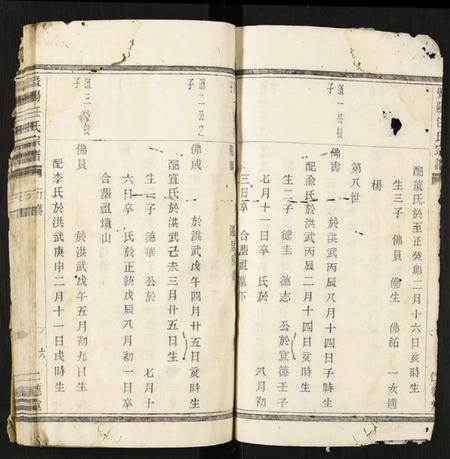 配萬氏於至正癸卯二月十六日亥時生
生三子 佛員 佛生 佛祐 一女適
楊
第八世
道一公長子
佛壽 於洪武丙辰八月十四日子時生
配俞氏於洪武丙辰二月十四日亥時生
生二子 德圭 德志 公於宣德壬子
七月十一日卒 氏於 八月初
三日卒 合葬祖墓下
道二公之子
佛成 於洪武戊午四月廿五日亥時生
配宣氏於洪武己未三月廿五日生
生一子 德華 公於 七月十
六日卒 氏於正統戊辰八月初一日卒
合葬祖墳山
道三公長子
佛員 於洪武戊午五月初九日生
配李氏於洪武庚申二月十一日戌時生
任氏宗譜